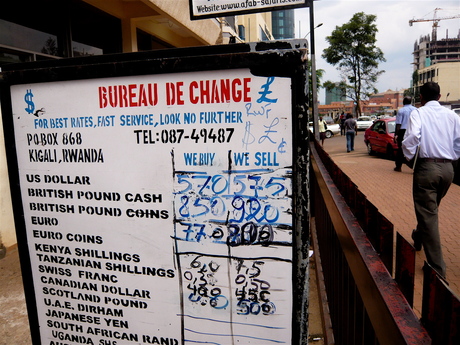 Website:www.afab-safaris.com
$ BUREAU DE CHANGE £
FOR BEST RATES, FAST SERVICE, LOOK NO FURTHER
P.O.BOX 868 TEL:087-49487
KIGALI, RWANDA
WE BUY WE SELL
US DOLLAR 570 575
BRITISH POUND CASH 850 920
BRITISH POUND COINS
EURO 770
EURO COINS
KENYA SHILLINGS 7,5
TANZANIAN SHILLINGS
SWISS FRANC
CANADIAN DOLLAR
SCOTLAND POUND 500
U.A.E. DIRHAM
JAPANESE YEN
SOUTH AFRICAN RAND
UGANDA SHS